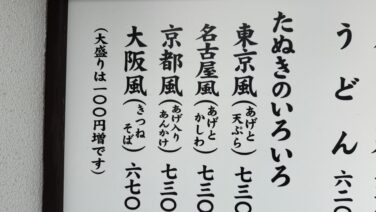 うどん 六二〇
たぬきのいろいろ
東京風(あげと天ぷら) 七三〇
名古屋風(あげとかしわ) 七三〇
京都風(あげ入りあんかけ) 七三〇
大阪風(きつねそば) 六七〇
(大盛りは一〇〇円増です)